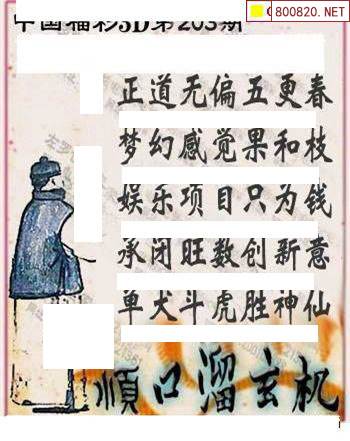 800820.NET
中国福彩3D第205期
正道无偏五更春
梦幻感觉果和枝
娱乐项目只为钱
承闭旺数创新意
单犬斗虎胜神仙
顺口溜玄机